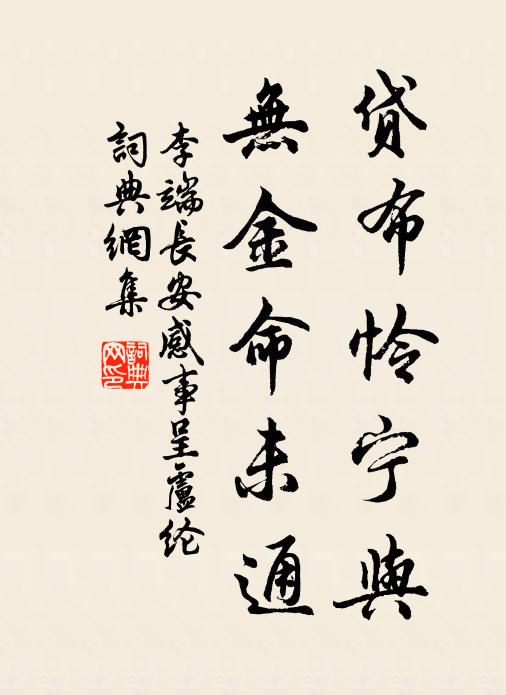 貸布怜宁與
無金命未通
李端長安感事呈盧纶
詞典網集
詞典網印